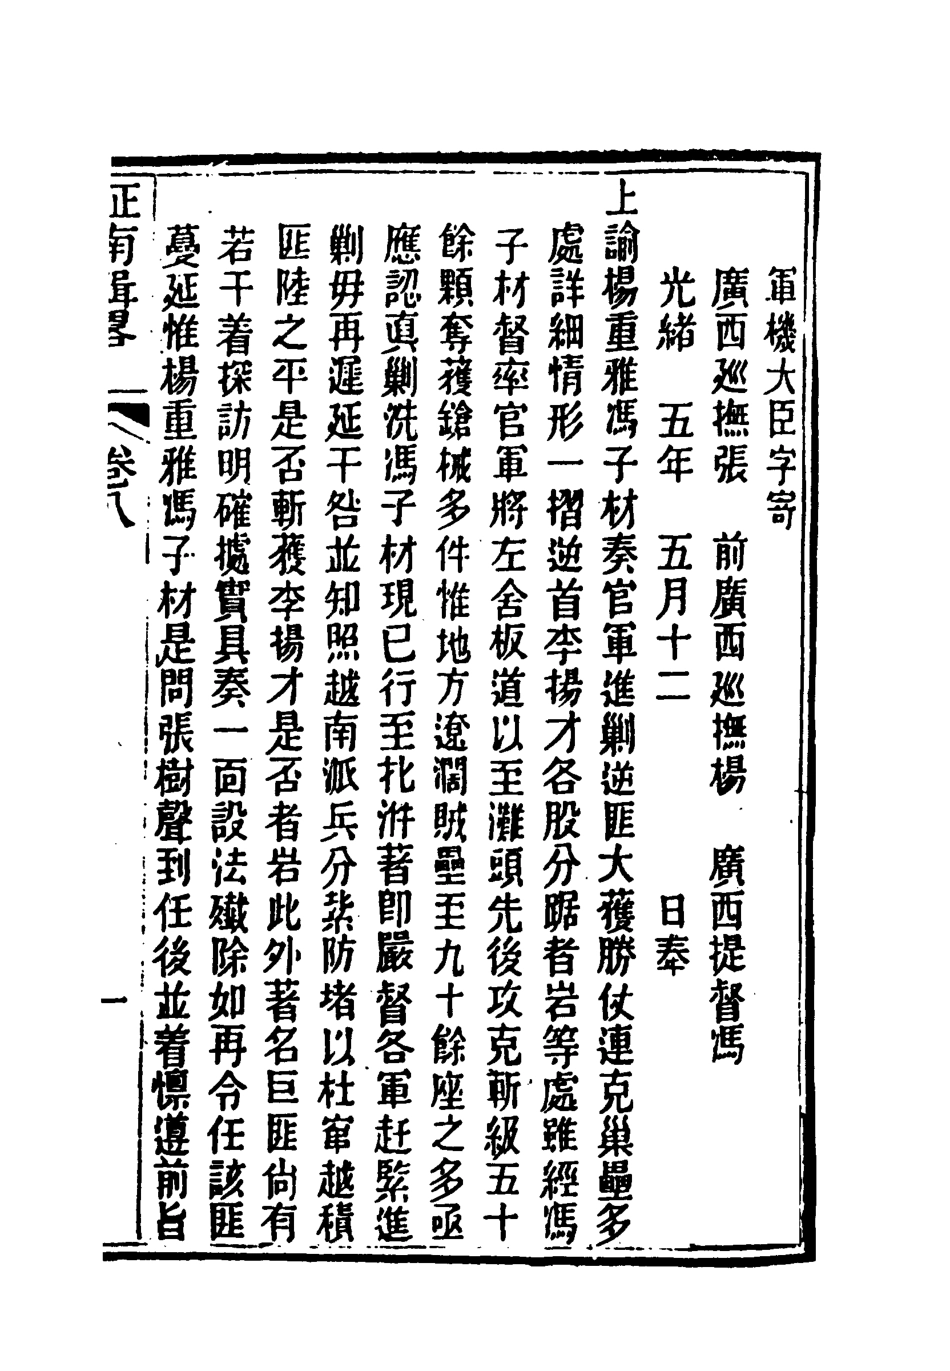 軍機大臣字寄
廣西巡撫張　前廣西巡撫楊　廣西提督馮
光緒　五年　五月十二　　日奉
上諭楊重雅馮子材奏官軍進剿逆匪大獲勝仗連克巢壘多
處詳細情形一摺逆首李揚才各股分踞者岩等處雖經馮
子材督率官軍將左舍板道以至灘頭先後攻克斬級五十
餘顆奪獲鎗械多件惟地方遼濶賊壘至九十餘座之多亟
應認真剿洗馮子材現已行至北泮著即嚴督各軍赶緊進
剿毋再遲延干咎並知照越南派兵分紮防堵以杜竄越積
匪陸之平是否斬獲李揚才是否者岩此外著名巨匪尙有
若干着探訪明確據實具奏一面設法殲除如再令任該匪
蔓延惟楊重雅馮子材是問張樹聲到任後並着懍遵前旨
征南輯畧　卷八　一